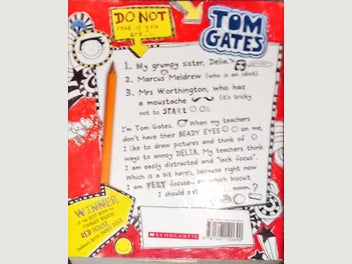 DO NOT
read if you
are...
TOM
GATES
1. My grumpy sister, Delia.
2. Marcus Meldrew (who is an idiot).
3. Mrs Worthington, who has
a moustache (it's tricky
not to STARE).
I'm Tom Gates. When my teachers
don't have their BEADY EYES on me,
I like to draw pictures and think of
ways to annoy DELIA. My teachers think
I am easily distracted and "lack focus".
Which is a bit harsh, because right now
I am VERY focused on which biscuit
I should eat mmm?
WINNER
RED HOUSE
SCHOLASTIC